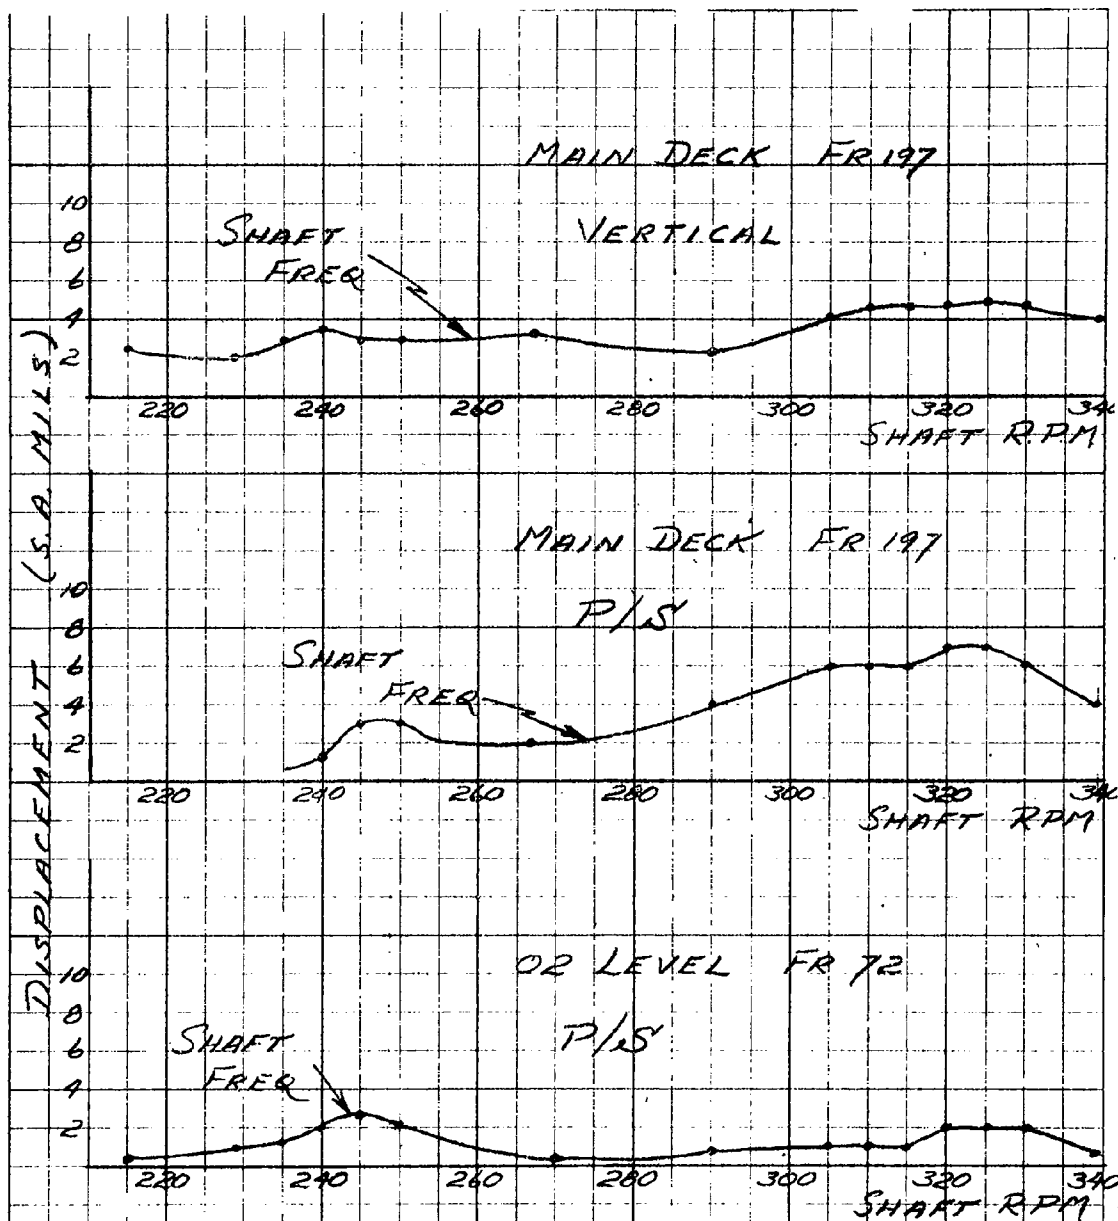 MAIN DECK FR 197
VERTICAL
SHAFT
FREQ
10
8
6
4
2
220 240 260 280 300 320 340
SHAFT RPM
DISPLACEMENT (S.A. MILS)
MAIN DECK FR 197
P/S
SHAFT
FREQ
10
8
6
4
2
220 240 260 280 300 320 340
SHAFT RPM
02 LEVEL FR 72
P/S
SHAFT
FREQ
10
8
6
4
2
220 240 260 280 300 320 340
SHAFT RPM